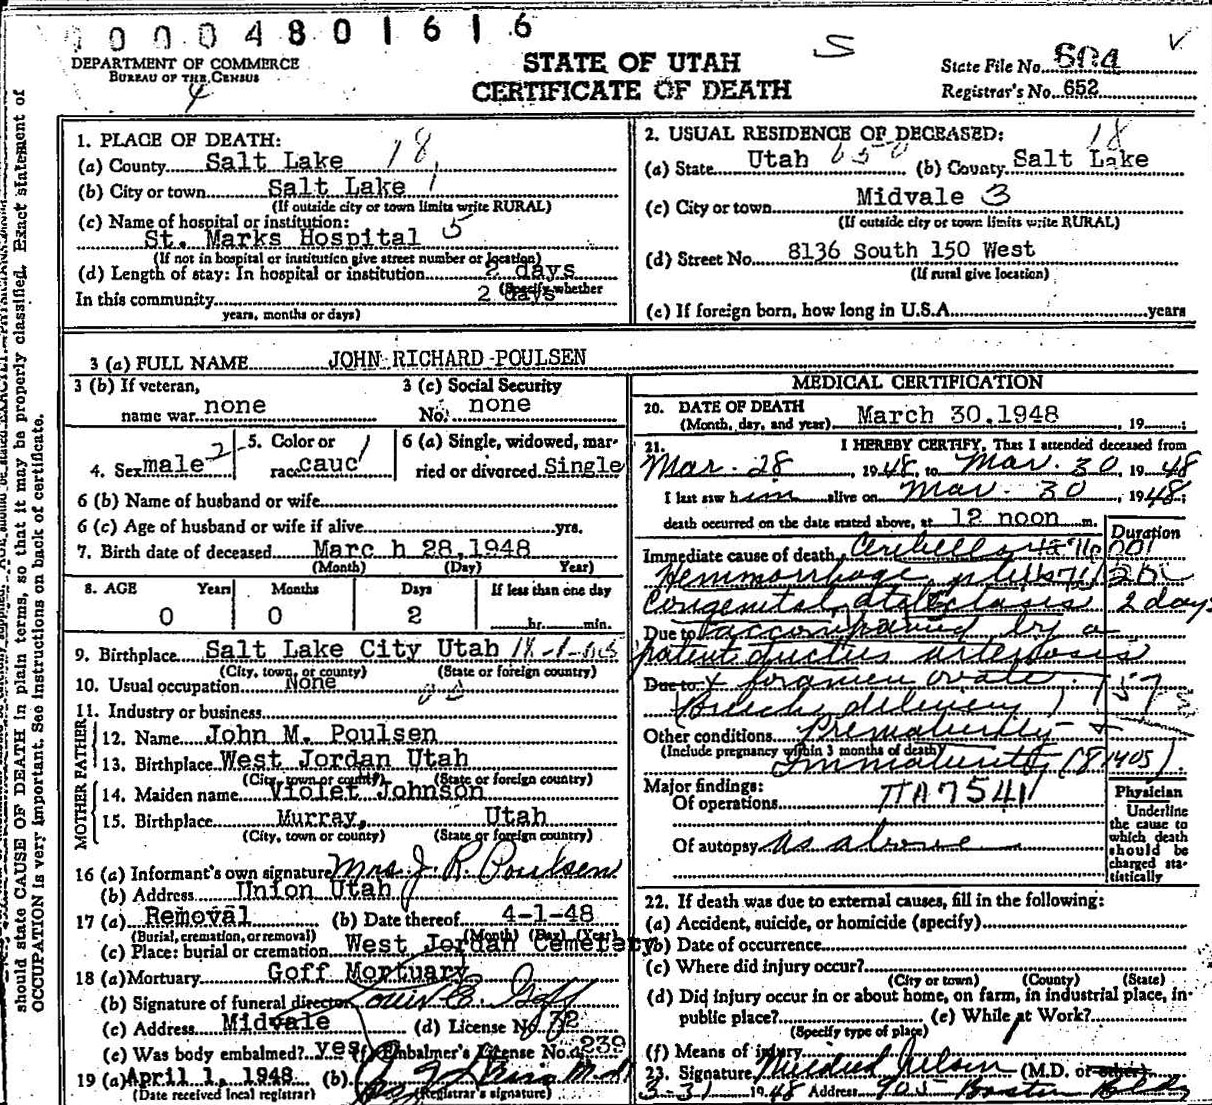 0 0 0 0 4 8 0 1 6 1 6
DEPARTMENT OF COMMERCE
BUREAU OF THE CENSUS
4
STATE OF UTAH
CERTIFICATE OF DEATH
S
State File No. 604
Registrar's No. 652
should state CAUSE OF DEATH in plain terms, so that it may be properly classified. Exact statement of
OCCUPATION is very important. See instructions on back of certificate.
1. PLACE OF DEATH:
(a) County Salt Lake 18
(b) City or town Salt Lake 1
(If outside city or town limits write RURAL)
(c) Name of hospital or institution:
St. Marks Hospital 5
(If not in hospital or institution give street number or location)
(d) Length of stay: In hospital or institution 2 days
(Specify whether
In this community 2 days
years, months or days)
2. USUAL RESIDENCE OF DECEASED:
18
(a) State Utah 650 (b) County Salt Lake
(c) City or town Midvale 3
(If outside city or town limits write RURAL)
(d) Street No. 8136 South 150 West
(If rural give location)
(e) If foreign born, how long in U.S.A. years
3 (a) FULL NAME JOHN RICHARD POULSEN
3 (b) If veteran,
name war none
3 (c) Social Security
No. none
4. Sex male 2
5. Color or
race cauc 1
6 (a) Single, widowed, mar-
ried or divorced Single
6 (b) Name of husband or wife
6 (c) Age of husband or wife if alive yrs.
7. Birth date of deceased Marc h 28,1948
(Month) (Day) Year)
8. AGE Years Months Days If less than one day
0 0 2 hr. min.
9. Birthplace Salt Lake City Utah
(City, town, or county) (State or foreign country)
10. Usual occupation None
11. Industry or business
FATHER
12. Name John M. Poulsen
13. Birthplace West Jordan Utah
(City, town or county) (State or foreign country)
MOTHER
14. Maiden name Violet Johnson
15. Birthplace Murray, Utah
(City, town or county) (State or foreign country)
16 (a) Informant's own signature Mrs. J. R. Poulsen
(b) Address Union Utah
17 (a) Removal (b) Date thereof 4-1-48
(Burial, cremation, or removal) (Month) (Day) (Year)
(c) Place: burial or cremation West Jordan Cemetery
18 (a) Mortuary Goff Mortuary
(b) Signature of funeral director Louis E. Goff
(c) Address Midvale (d) License No. 72
(e) Was body embalmed? yes (f) Embalmer's License No. 239
19 (a) April 1, 1948 (b)
(Date received local registrar) (Registrar's signature)
MEDICAL CERTIFICATION
20. DATE OF DEATH
(Month, day, and year) March 30,1948 , 19 ;
21. I HEREBY CERTIFY, That I attended deceased from
Mar. 28 , 1948, to Mar. 30, 1948
I last saw him alive on Mar. 30 , 1948;
death occurred on the date stated above, at 12 noon m.
Duration
Immediate cause of death Cerebellar
Hemmorrhage
Congenital atelectasis 2 days
Due to accompanied by a
patent ductus arteriosis
Due to & foramen ovate. 157
(Breech delivery)
Other conditions Prematurity
(Include pregnancy within 3 months of death)
Immaturity
Major findings:
Of operations TTA7541
Of autopsy as above
Physician
Underline
the cause to
which death
should be
charged sta-
tistically
22. If death was due to external causes, fill in the following:
(a) Accident, suicide, or homicide (specify)
(b) Date of occurrence
(c) Where did injury occur?
(City or town) (County) (State)
(d) Did injury occur in or about home, on farm, in industrial place, in
public place? (e) While at Work?
(Specify type of place)
(f) Means of injury
23. Signature Mildred Nelson (M.D. or other)
3-31 1948 Address 905 Boston Bldg